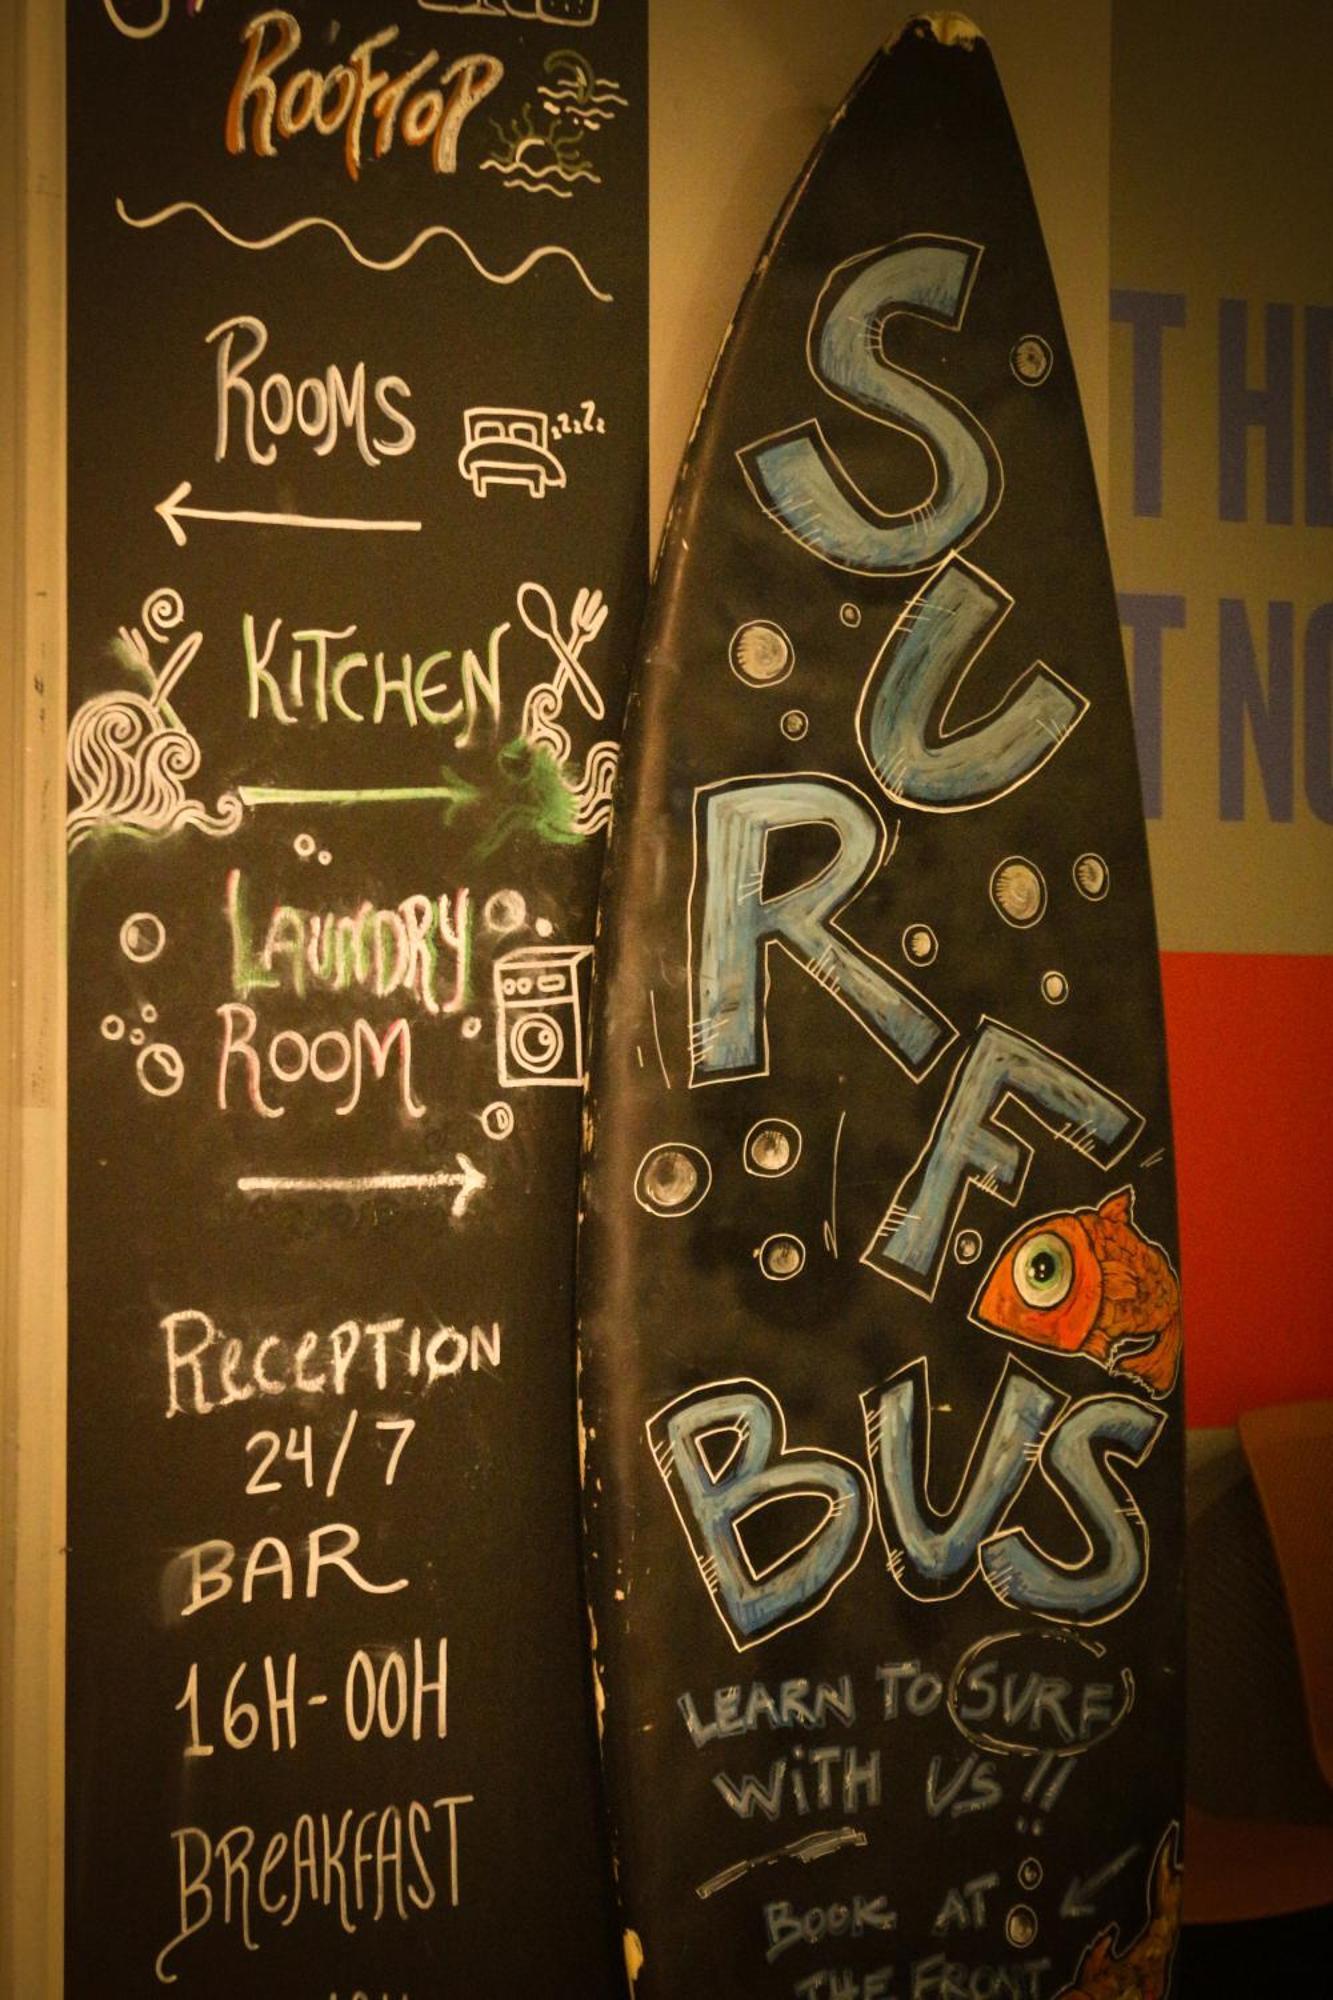 ROOFTOP
ROOMS
zzzz
KITCHEN
LAUNDRY
ROOM
RECEPTION
24/7
BAR
16H-00H
BREAKFAST
SURF
BUS
LEARN TO SURF
WiTH US!!
BOOK AT
THE FRONT
T H
T NO